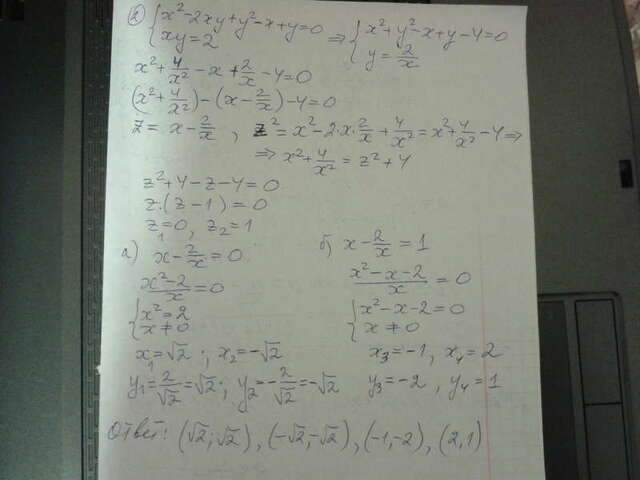 ② {x²-2xy+y²-x+y=0 ⇒ {x²+y²-x+y-4=0
{xy=2 {y=2/x
x²+4/x²-x+2/x-4=0
(x²+4/x²)-(x-2/x)-4=0
z=x-2/x, z²=x²-2·x·2/x+4/x²=x²+4/x²-4⇒
⇒x²+4/x²=z²+4
z²+4-z-4=0
z·(z-1)=0
z₁=0, z₂=1
а) x-2/x=0
(x²-2)/x=0
{x²=2
{x≠0
x₁=√2; x₂=-√2
y₁=2/√2=√2; y₂=-2/√2=-√2
б) x-2/x=1
(x²-x-2)/x=0
{x²-x-2=0
{x≠0
x₃=-1, x₄=2
y₃=-2, y₄=1
Ответ: (√2;√2), (-√2,-√2), (-1,-2), (2,1)